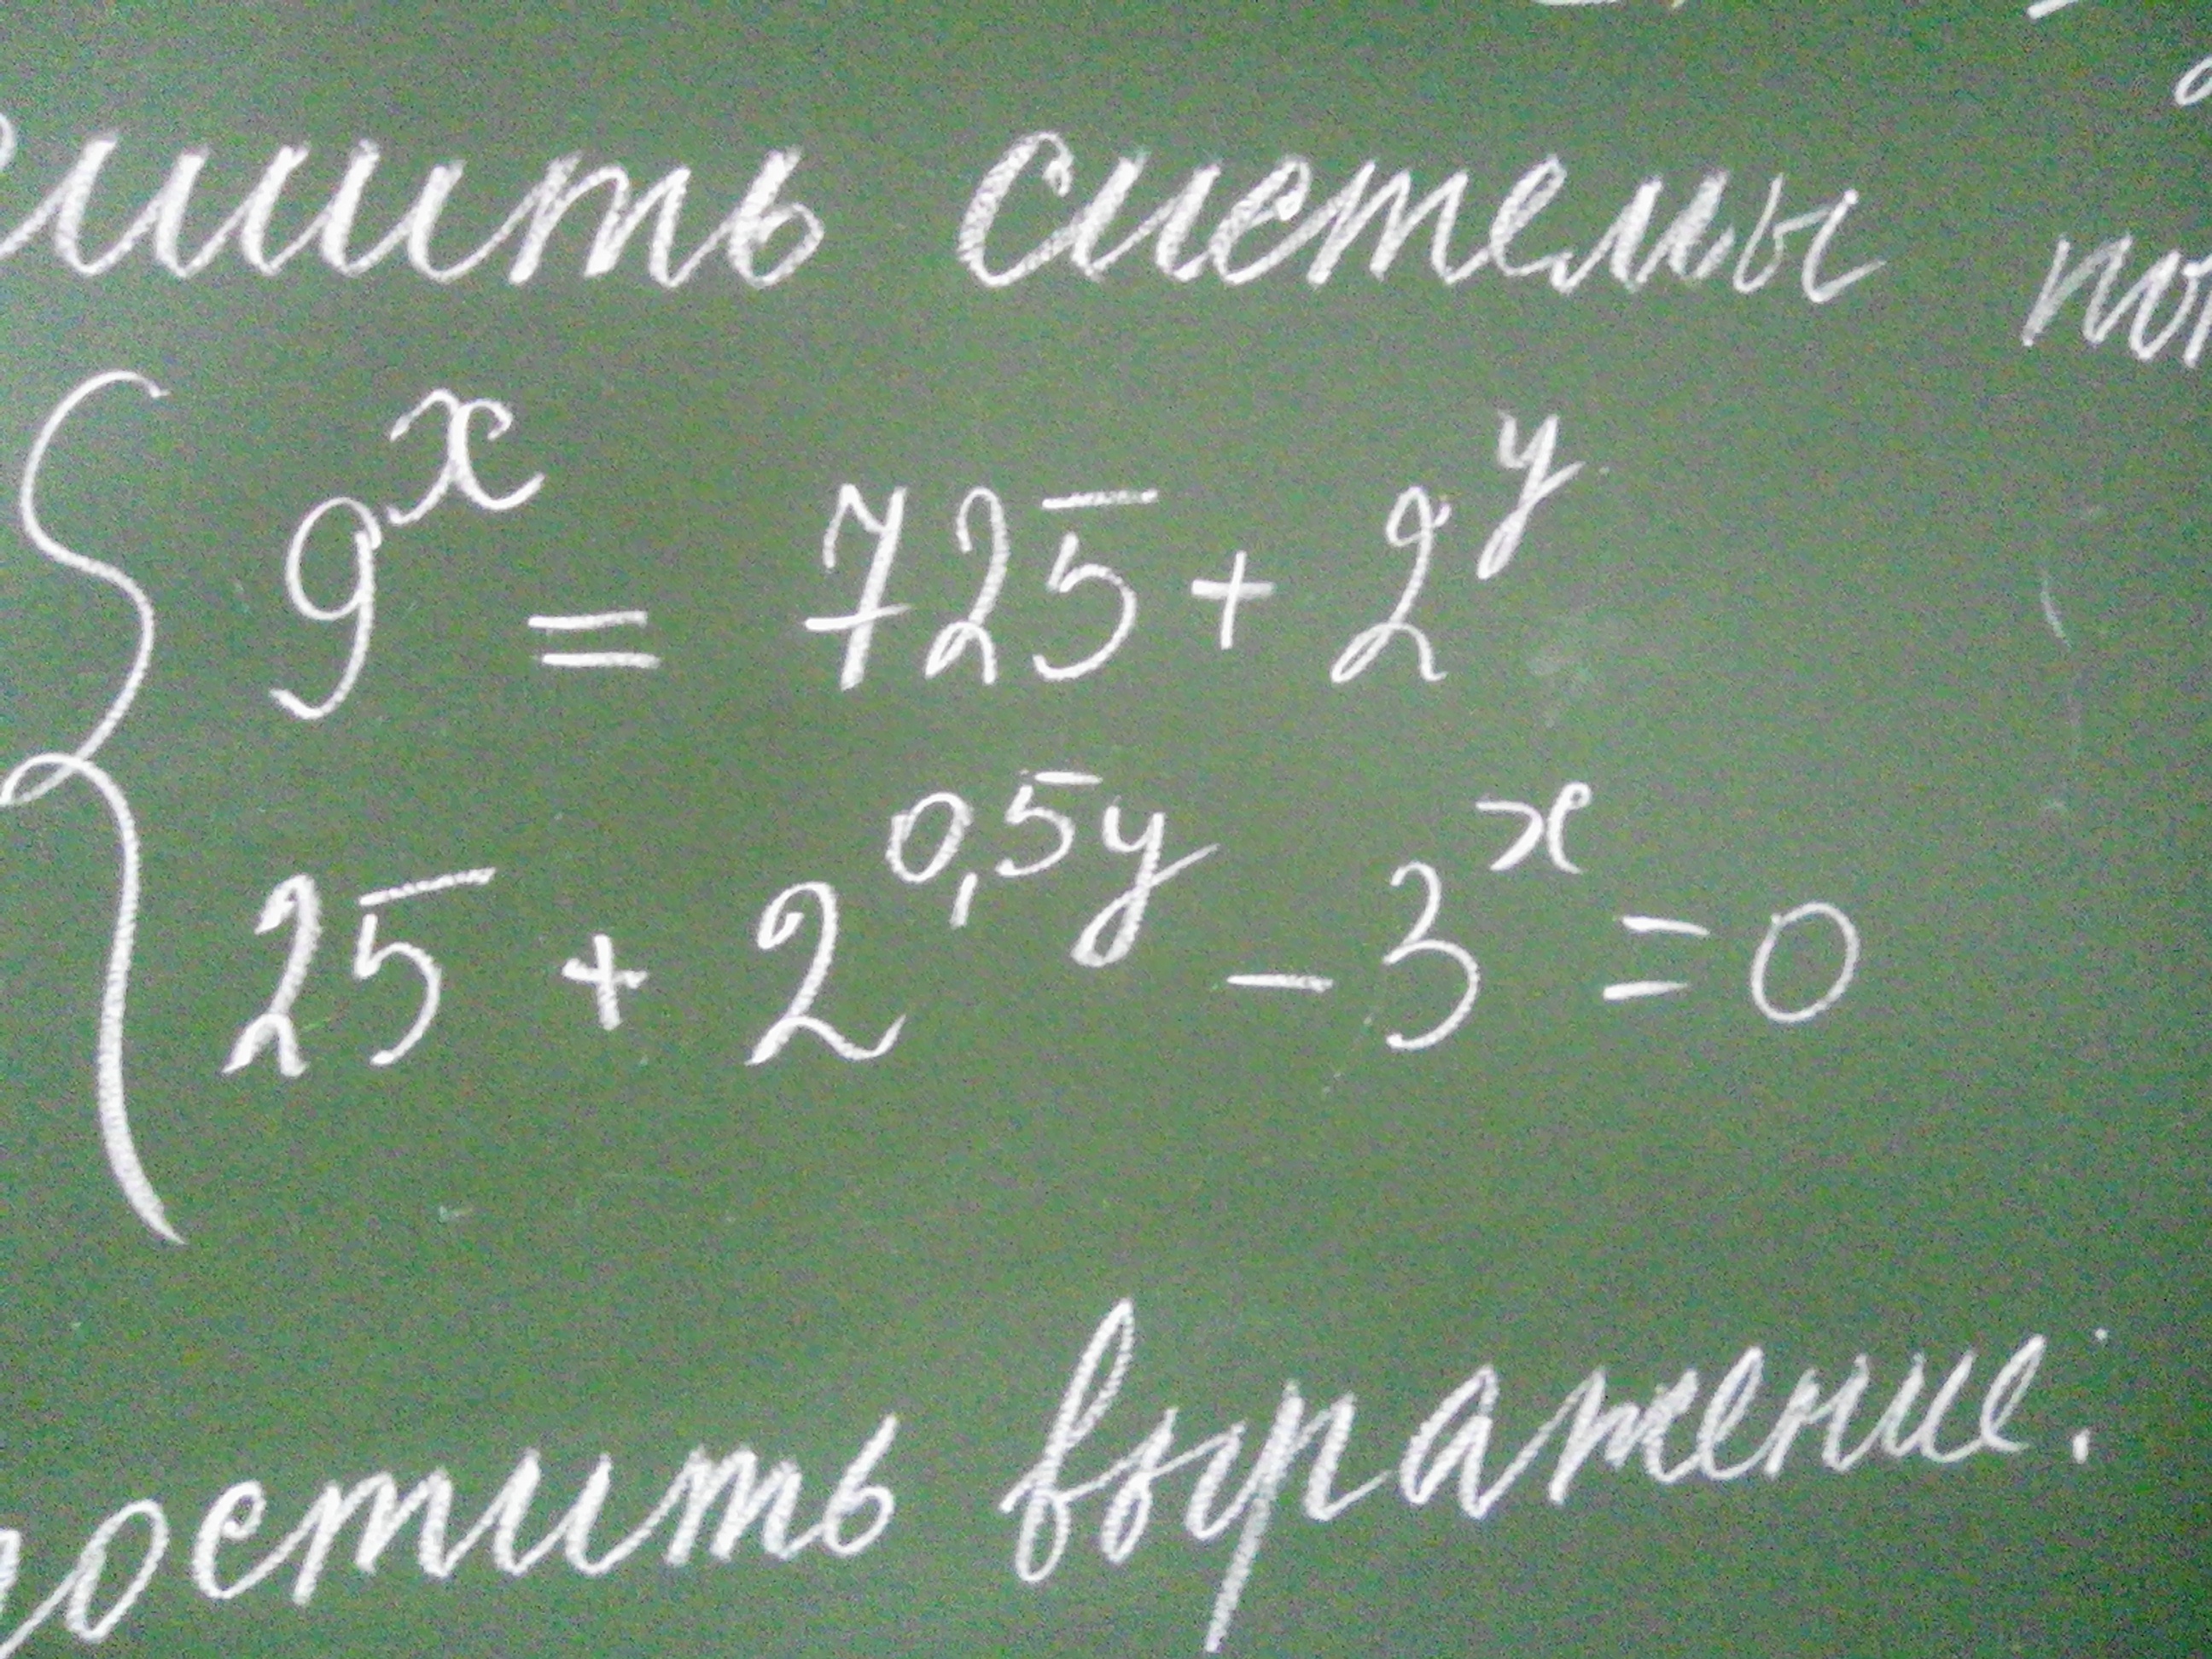 ешить системы пок
9^x = 725 + 2^y
25 + 2^{0,5y} - 3^x = 0
ростить выражение: